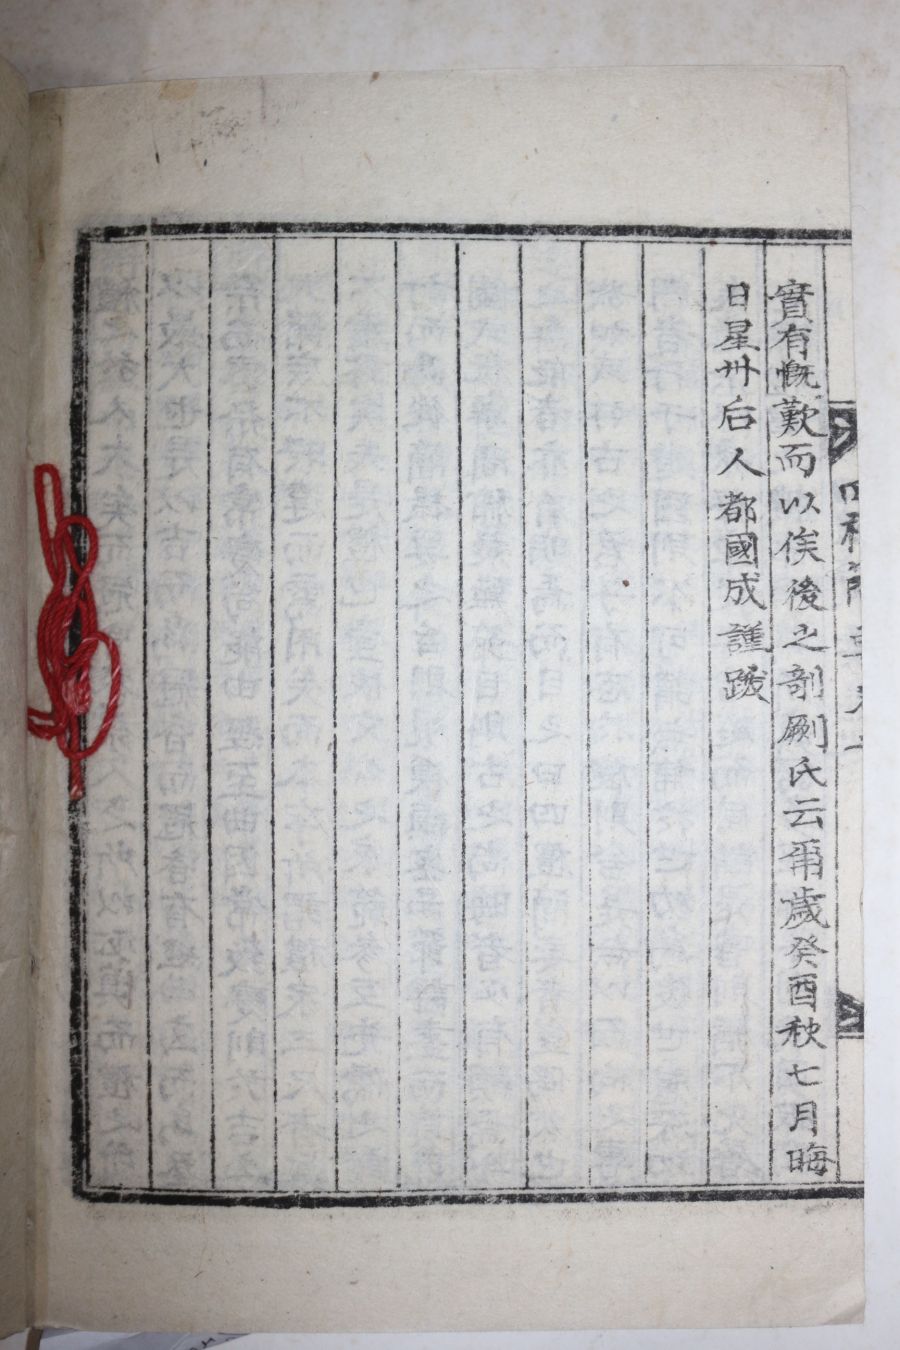 實有慨歎而以俟後之剞劂氏云爾歲癸酉秋七月晦
日星州后人都國成謹跋
四禮